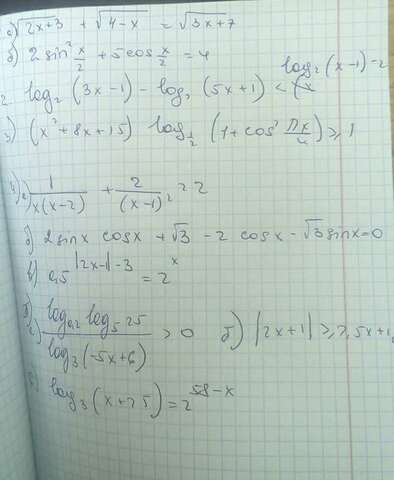 а) √2x+3 + √4-x = √3x+7
б) 2 sin² x/2 + 5 cos x/2 = 4
2. log₂ (3x-1) - log₂ (5x+1) < log₂ (x-1) - 2
3) (x²+8x+15) log 1/2 (1+cos² πx/4) ≥ 1
4) а) 1/x(x-2) + 2/(x-1)² = 2
б) 2 sinx cosx + √3 - 2 cosx - √3 sinx = 0
в) 0,5^|2x-1|-3 = 2^x
log₀,₂ log₅ 25 / log₃(-5x+6) > 0 б) |2x+1| ≥ 2,5x+1
log₃ (x+25) = 2^58-x